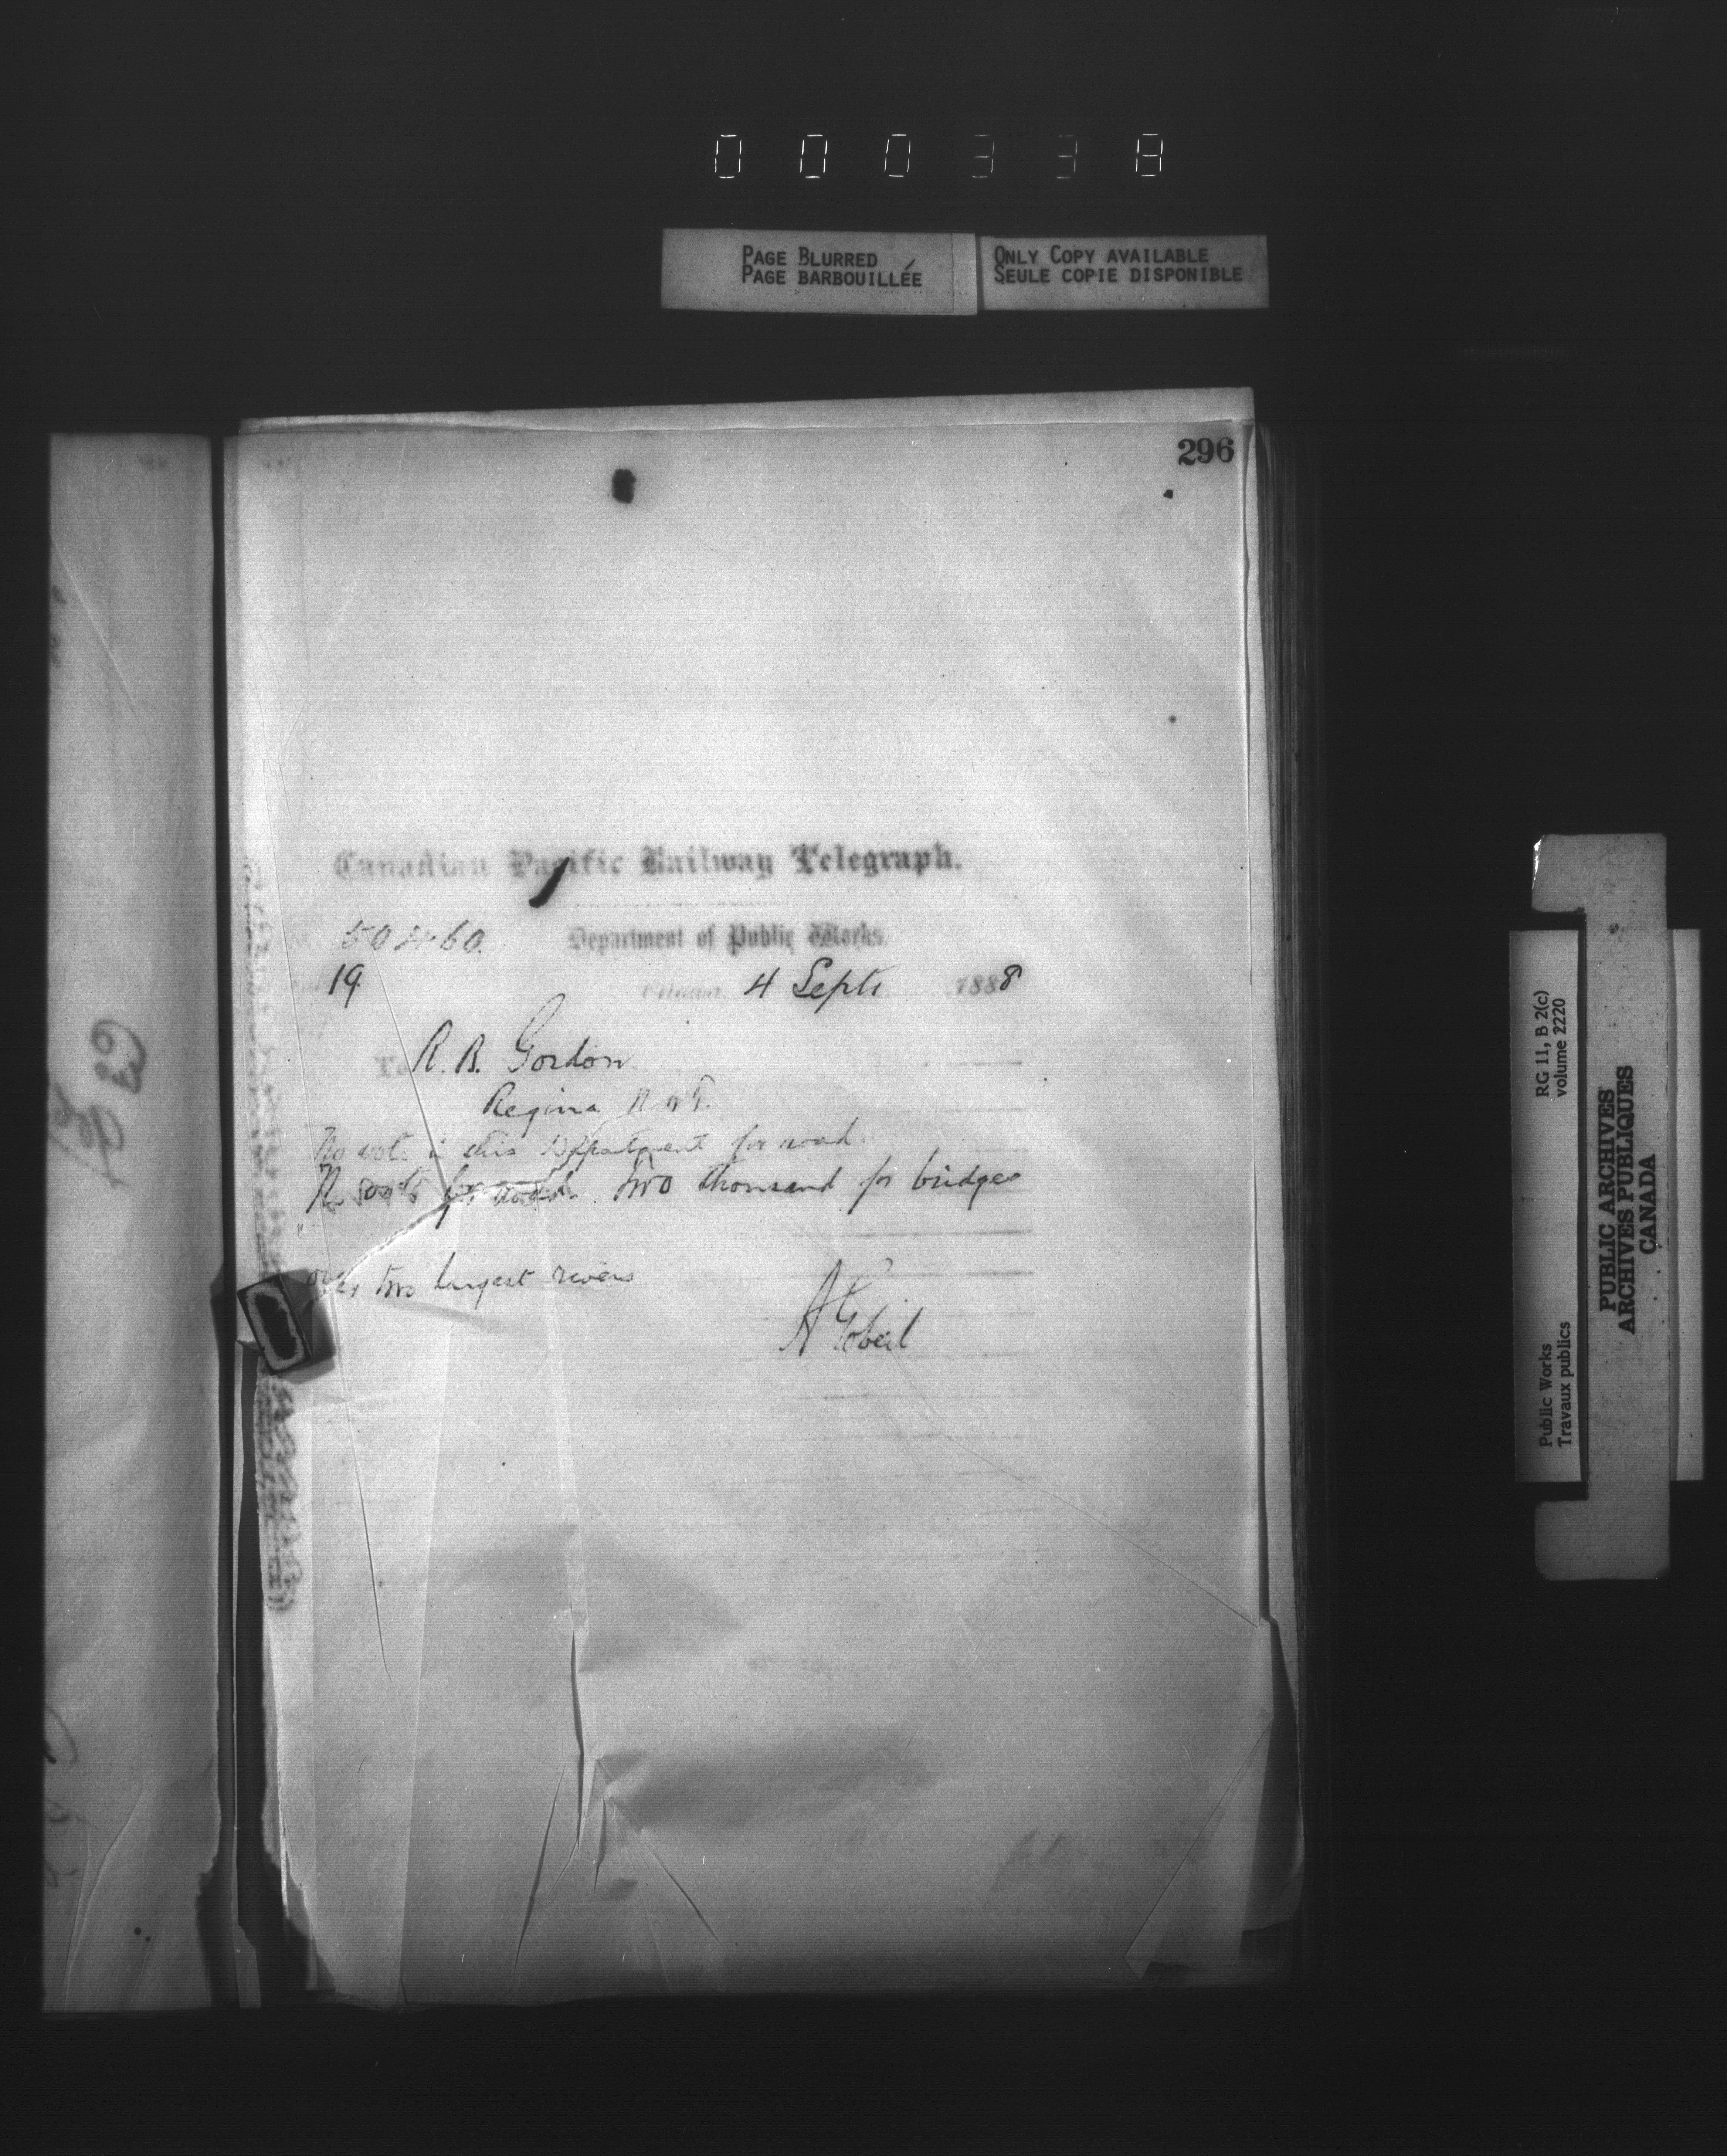 000338
PAGE BLURRED
PAGE BARBOUILLÉE
ONLY COPY AVAILABLE
SEULE COPIE DISPONIBLE
296
Canadian Pacific Railway Telegraph.
Department of Public Works.
19
4 Sept. 1888
To R. B. Gordon
Regina N W T.
No vote in this Department for road
two thousand for bridges
over two largest rivers
A Gobeil
RG 11, B 2(c)
volume 2220
Public Works
Travaux publics
PUBLIC ARCHIVES
ARCHIVES PUBLIQUES
CANADA